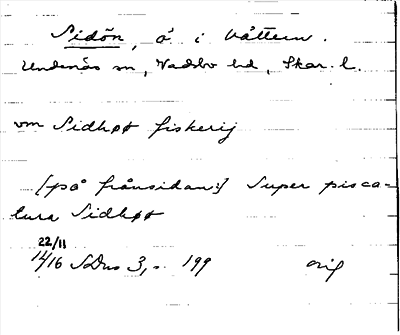 Sidön, ö i Vättern.
Undenäs sn, Vadsbo hd, Skar. l.
vm Sidhøø fiskerij
[på frånsidan:] Super pisca=
tura Sidhøø
22/11
1416 SDns 3, s. 199 orig